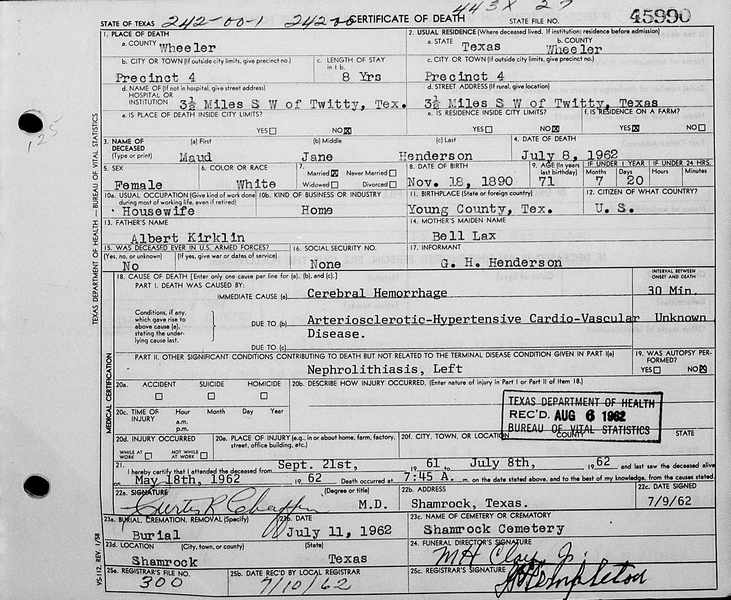 443X 27
STATE OF TEXAS 242-00-1 242-00 CERTIFICATE OF DEATH STATE FILE NO. 45990
1. PLACE OF DEATH
a. COUNTY Wheeler
2. USUAL RESIDENCE (Where deceased lived. If institution: residence before admission)
a. STATE Texas b. COUNTY Wheeler
b. CITY OR TOWN (If outside city limits, give precinct no.) Precinct 4
c. LENGTH OF STAY in 1 b. 8 Yrs
c. CITY OR TOWN (If outside city limits, give precinct no.) Precinct 4
d. NAME OF (If not in hospital, give street address) HOSPITAL OR INSTITUTION 3½ Miles S W of Twitty, Tex.
d. STREET ADDRESS (If rural, give location) 3½ Miles S W of Twitty, Texas
e. IS PLACE OF DEATH INSIDE CITY LIMITS? YES☐ NO☒
e. IS RESIDENCE INSIDE CITY LIMITS? YES☐ NO☒
f. IS RESIDENCE ON A FARM? YES☒ NO☐
3. NAME OF DECEASED (Type or print) (a) First Maud (b) Middle Jane (c) Last Henderson
4. DATE OF DEATH July 8, 1962
5. SEX Female
6. COLOR OR RACE White
7. Married☒ Never Married☐ Widowed☐ Divorced☐
8. DATE OF BIRTH Nov. 18, 1890
9. AGE (In years last birthday) 71
IF UNDER 1 YEAR Months 7 Days 20
IF UNDER 24 HRS. Hours Minutes
10a. USUAL OCCUPATION (Give kind of work done during most of working life, even if retired) Housewife
10b. KIND OF BUSINESS OR INDUSTRY Home
11. BIRTHPLACE (State or foreign country) Young County, Tex.
12. CITIZEN OF WHAT COUNTRY? U. S.
13. FATHER'S NAME Albert Kirklin
14. MOTHER'S MAIDEN NAME Bell Lax
15. WAS DECEASED EVER IN U.S. ARMED FORCES? (Yes, no, or unknown) (If yes, give war or dates of service) No
16. SOCIAL SECURITY NO. None
17. INFORMANT G. H. Henderson
18. CAUSE OF DEATH [Enter only one cause per line for (a), (b), and (c).]
INTERVAL BETWEEN ONSET AND DEATH
PART I. DEATH WAS CAUSED BY:
IMMEDIATE CAUSE (a) Cerebral Hemorrhage 30 Min.
Conditions, if any, which gave rise to above cause (a), stating the underlying cause last.
DUE TO (b) Arteriosclerotic-Hypertensive Cardio-Vascular Disease. Unknown
DUE TO (c)
PART II. OTHER SIGNIFICANT CONDITIONS CONTRIBUTING TO DEATH BUT NOT RELATED TO THE TERMINAL DISEASE CONDITION GIVEN IN PART I(a)
Nephrolithiasis, Left
19. WAS AUTOPSY PERFORMED? YES☐ NO☒
20a. ACCIDENT ☐ SUICIDE ☐ HOMICIDE ☐
20b. DESCRIBE HOW INJURY OCCURRED. (Enter nature of injury in Part I or Part II of Item 18.)
20c. TIME OF INJURY Hour a.m. p.m. Month Day Year
TEXAS DEPARTMENT OF HEALTH
REC'D. AUG 6 1962
BUREAU OF VITAL STATISTICS
20d. INJURY OCCURRED WHILE AT WORK ☐ NOT WHILE AT WORK ☐
20e. PLACE OF INJURY (e.g., in or about home, farm, factory, street, office building, etc.)
20f. CITY, TOWN, OR LOCATION COUNTY STATE
21. I hereby certify that I attended the deceased from Sept. 21st, 19 61 to July 8th, 19 62 and last saw the deceased alive
on May 18th, 1962 19 62 Death occurred at 7:45 A. m. on the date stated above, and to the best of my knowledge, from the causes stated.
22a. SIGNATURE Curtis R Chaffin (Degree or title) M.D.
22b. ADDRESS Shamrock, Texas.
22c. DATE SIGNED 7/9/62
23a. BURIAL, CREMATION, REMOVAL (Specify) Burial
23b. DATE July 11, 1962
23c. NAME OF CEMETERY OR CREMATORY Shamrock Cemetery
23d. LOCATION (City, town, or county) (State) Shamrock Texas
24. FUNERAL DIRECTOR'S SIGNATURE M H Clay Jr.
25a. REGISTRAR'S FILE NO. 300
25b. DATE REC'D BY LOCAL REGISTRAR 7/10/62
25c. REGISTRAR'S SIGNATURE
TEXAS DEPARTMENT OF HEALTH — BUREAU OF VITAL STATISTICS
MEDICAL CERTIFICATION
VS-112, REV. 1/58
125